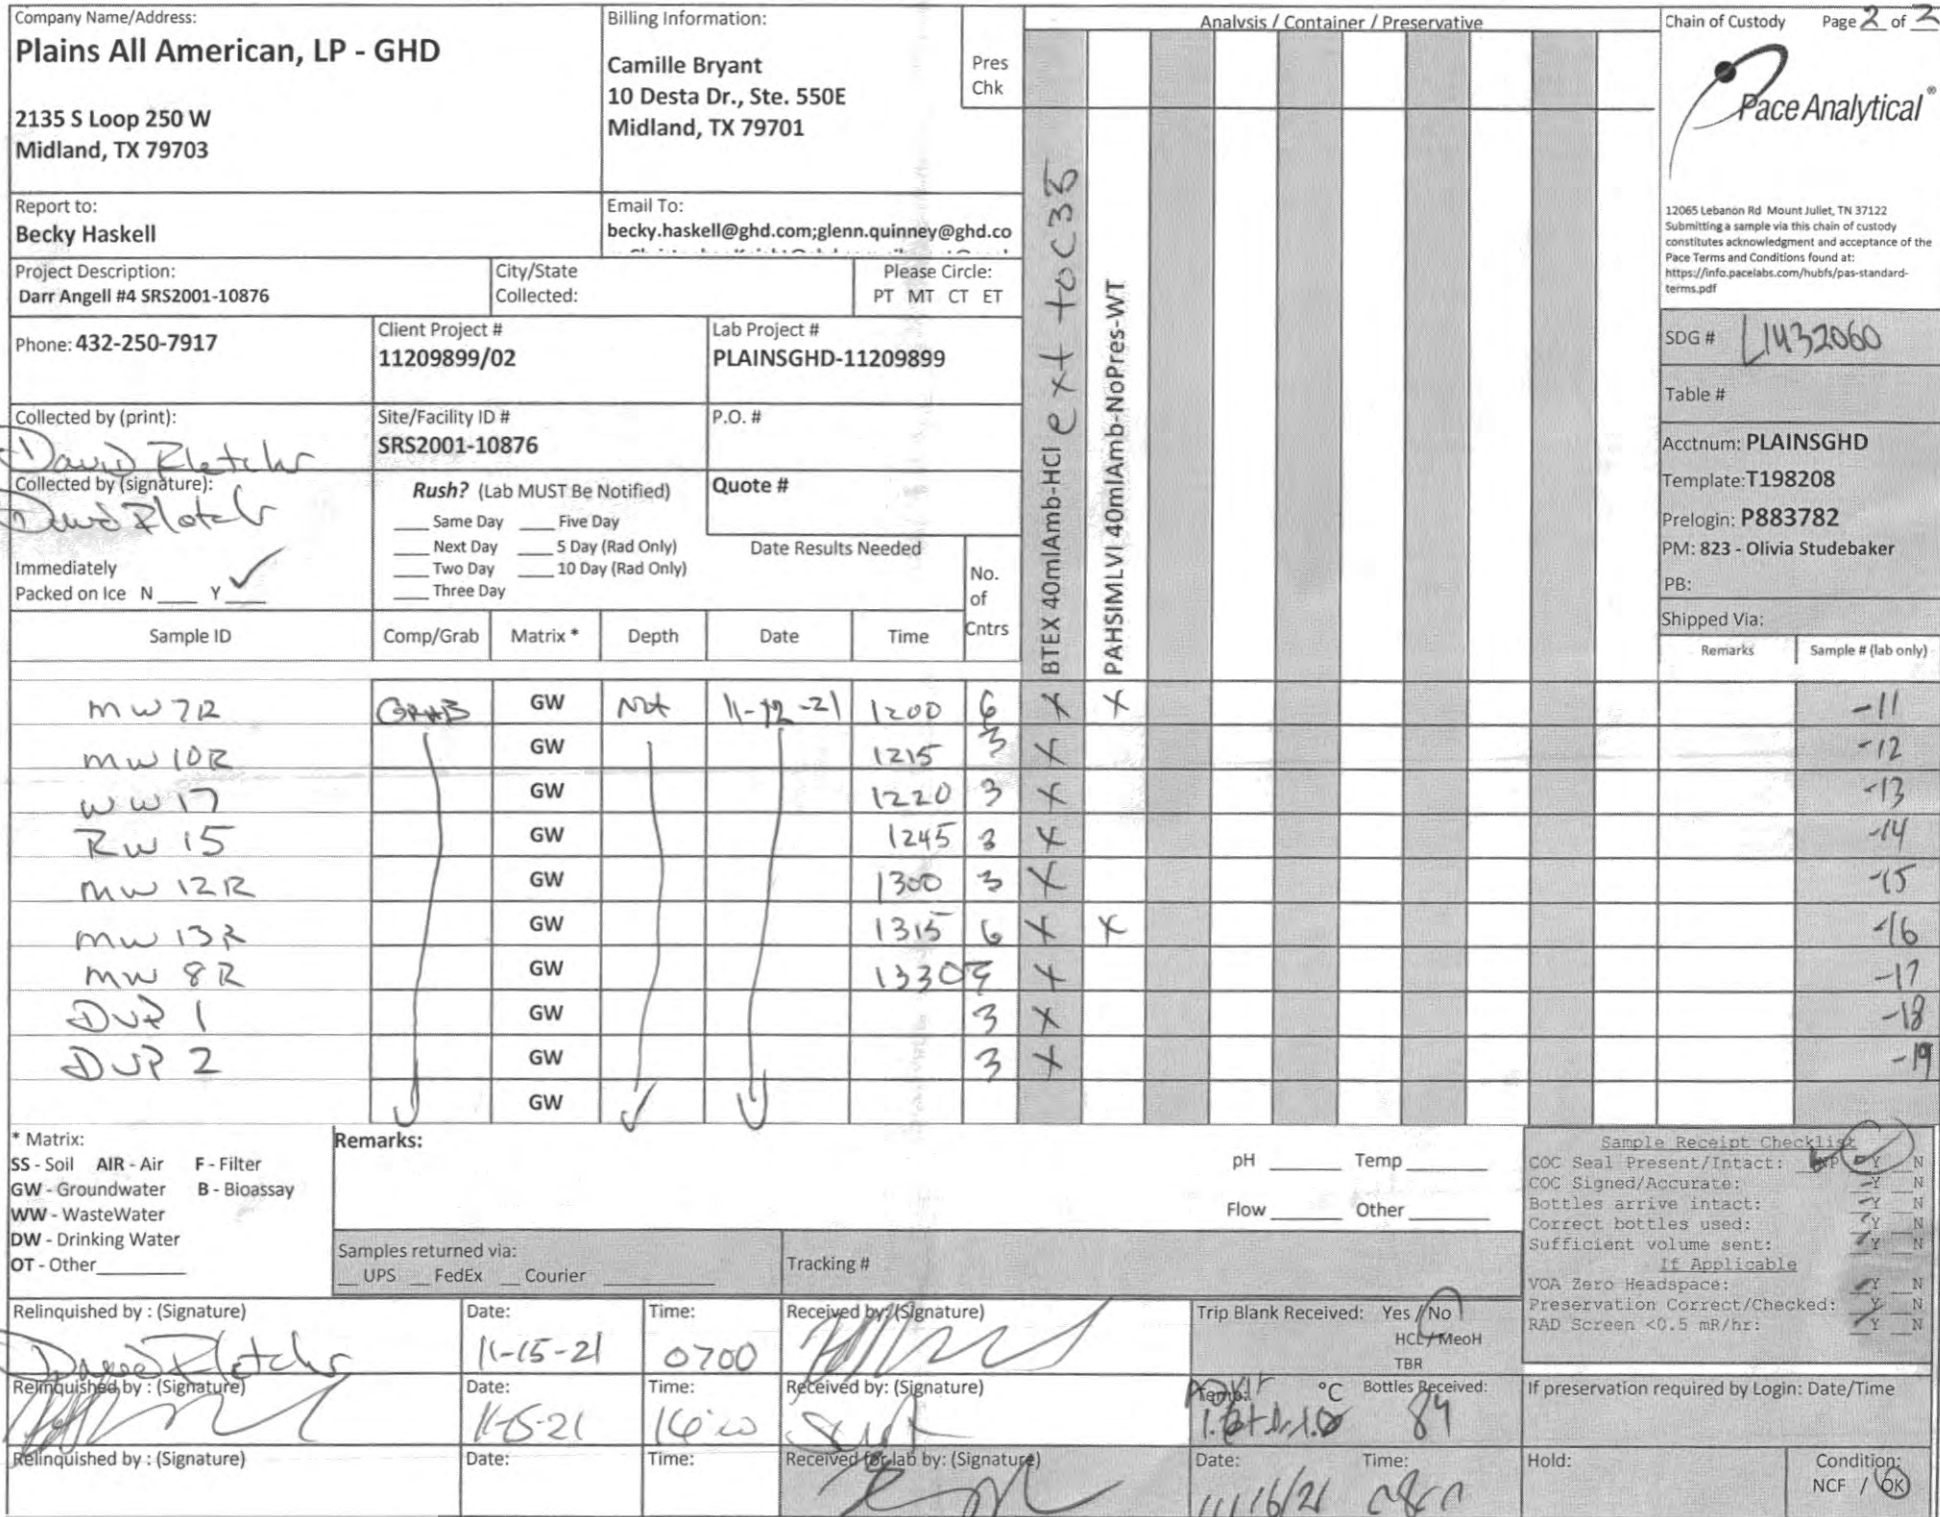 Company Name/Address:
Plains All American, LP - GHD
2135 S Loop 250 W
Midland, TX 79703
Billing Information:
Camille Bryant
10 Desta Dr., Ste. 550E
Midland, TX 79701
Pres
Chk
Analysis / Container / Preservative
Chain of Custody Page 2 of
Pace Analytical®
12065 Lebanon Rd Mount Juliet, TN 37122
Submitting a sample via this chain of custody
constitutes acknowledgment and acceptance of the
Pace Terms and Conditions found at:
https://info.pacelabs.com/hubfs/pas-standard-
terms.pdf
Report to:
Becky Haskell
Email To:
becky.haskell@ghd.com;glenn.quinney@ghd.co
Project Description:
Darr Angell #4 SRS2001-10876
City/State
Collected:
Please Circle:
PT MT CT ET
Phone: 432-250-7917
Client Project #
11209899/02
Lab Project #
PLAINSGHD-11209899
SDG # L1432060
Table #
Collected by (print):
David Fletcher
Site/Facility ID #
SRS2001-10876
P.O. #
Acctnum: PLAINSGHD
Template:T198208
Prelogin: P883782
PM: 823 - Olivia Studebaker
PB:
Collected by (signature):
David Fletcher
Rush? (Lab MUST Be Notified)
Same Day Five Day
Next Day 5 Day (Rad Only)
Two Day 10 Day (Rad Only)
Three Day
Quote #
Date Results Needed
Immediately
Packed on Ice N Y ✓
No.
of
Cntrs
BTEX 40mlAmb-HCl ext to C35
PAHSIMLVI 40mlAmb-NoPres-WT
Shipped Via:
Sample ID Comp/Grab Matrix * Depth Date Time Remarks Sample # (lab only)
MW 7R GRAB GW NA 11-12-21 1200 6 X X -11
MW 10R GW 1215 3 X -12
WW 17 GW 1220 3 X -13
RW 15 GW 1245 3 X -14
MW 12R GW 1300 3 X -15
MW 13R GW 1315 6 X X -16
MW 8R GW 1330 X -17
DUP 1 GW 3 X -18
DUP 2 GW 3 X -19
GW
* Matrix:
SS - Soil AIR - Air F - Filter
GW - Groundwater B - Bioassay
WW - WasteWater
DW - Drinking Water
OT - Other
Remarks:
pH Temp
Flow Other
Samples returned via:
UPS FedEx Courier
Tracking #
Sample Receipt Checklist
COC Seal Present/Intact: NP Y N
COC Signed/Accurate: Y N
Bottles arrive intact: Y N
Correct bottles used: Y N
Sufficient volume sent: Y N
If Applicable
VOA Zero Headspace: Y N
Preservation Correct/Checked: Y N
RAD Screen <0.5 mR/hr: Y N
Relinquished by : (Signature)
David Fletcher
Date:
11-15-21
Time:
0700
Received by: (Signature)
Trip Blank Received: Yes / No
HCL / MeoH
TBR
Relinquished by : (Signature)
Date:
11-15-21
Time:
Received by: (Signature)
Temp: °C
Bottles Received:
84
If preservation required by Login: Date/Time
Relinquished by : (Signature)
Date:
Time:
Received for lab by: (Signature)
Date:
11/16/21
Time:
Hold:
Condition:
NCF / OK